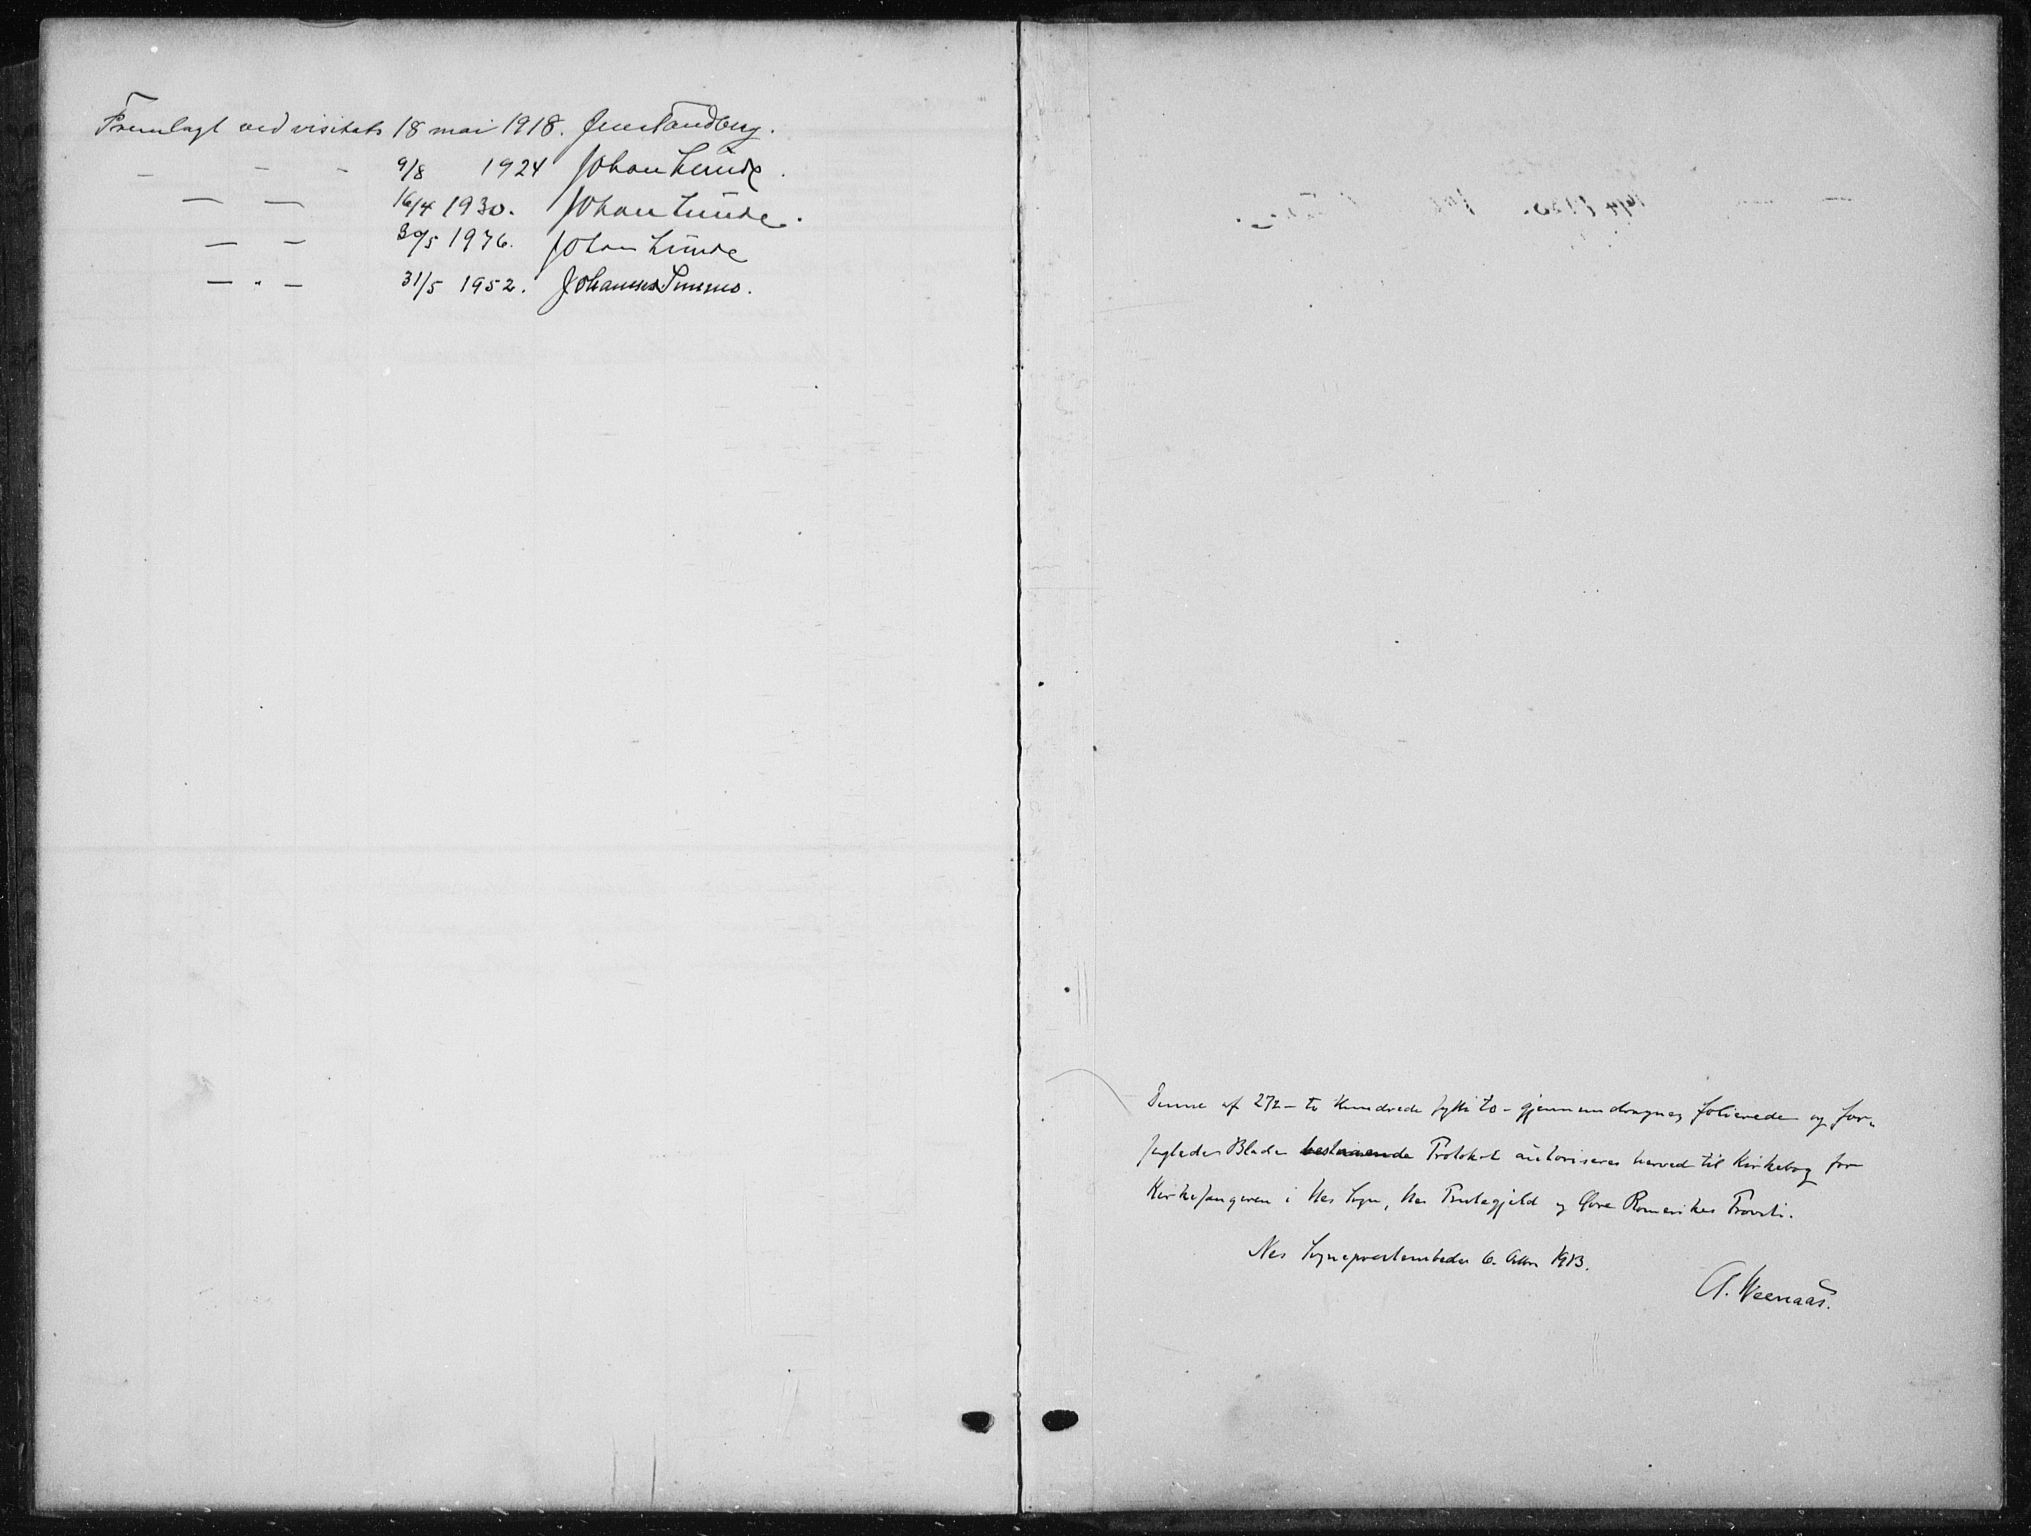 Fremlagt ved visitats 18 mai 1918. Jens Tandberg.
- - - 9/8 1924 Johan Lunde.
— — 16/4 1930. Johan Lunde.
— — 30/5 1936. Johan Lunde
— " — 31/5 1952. Johannes Smemo.
Denne af 272 – to Hundrede sytti to – gjennemdragne, folierede og for-
seglede Blade bestaaende Protokol autoriseres herved til Kirkebog for
Kirkesangeren i Nes Sogn, Nes Prestegjeld og Øvre Romerikes Provsti.
Nes Sogneprestembede 6. 1913.
A. Weenaas.